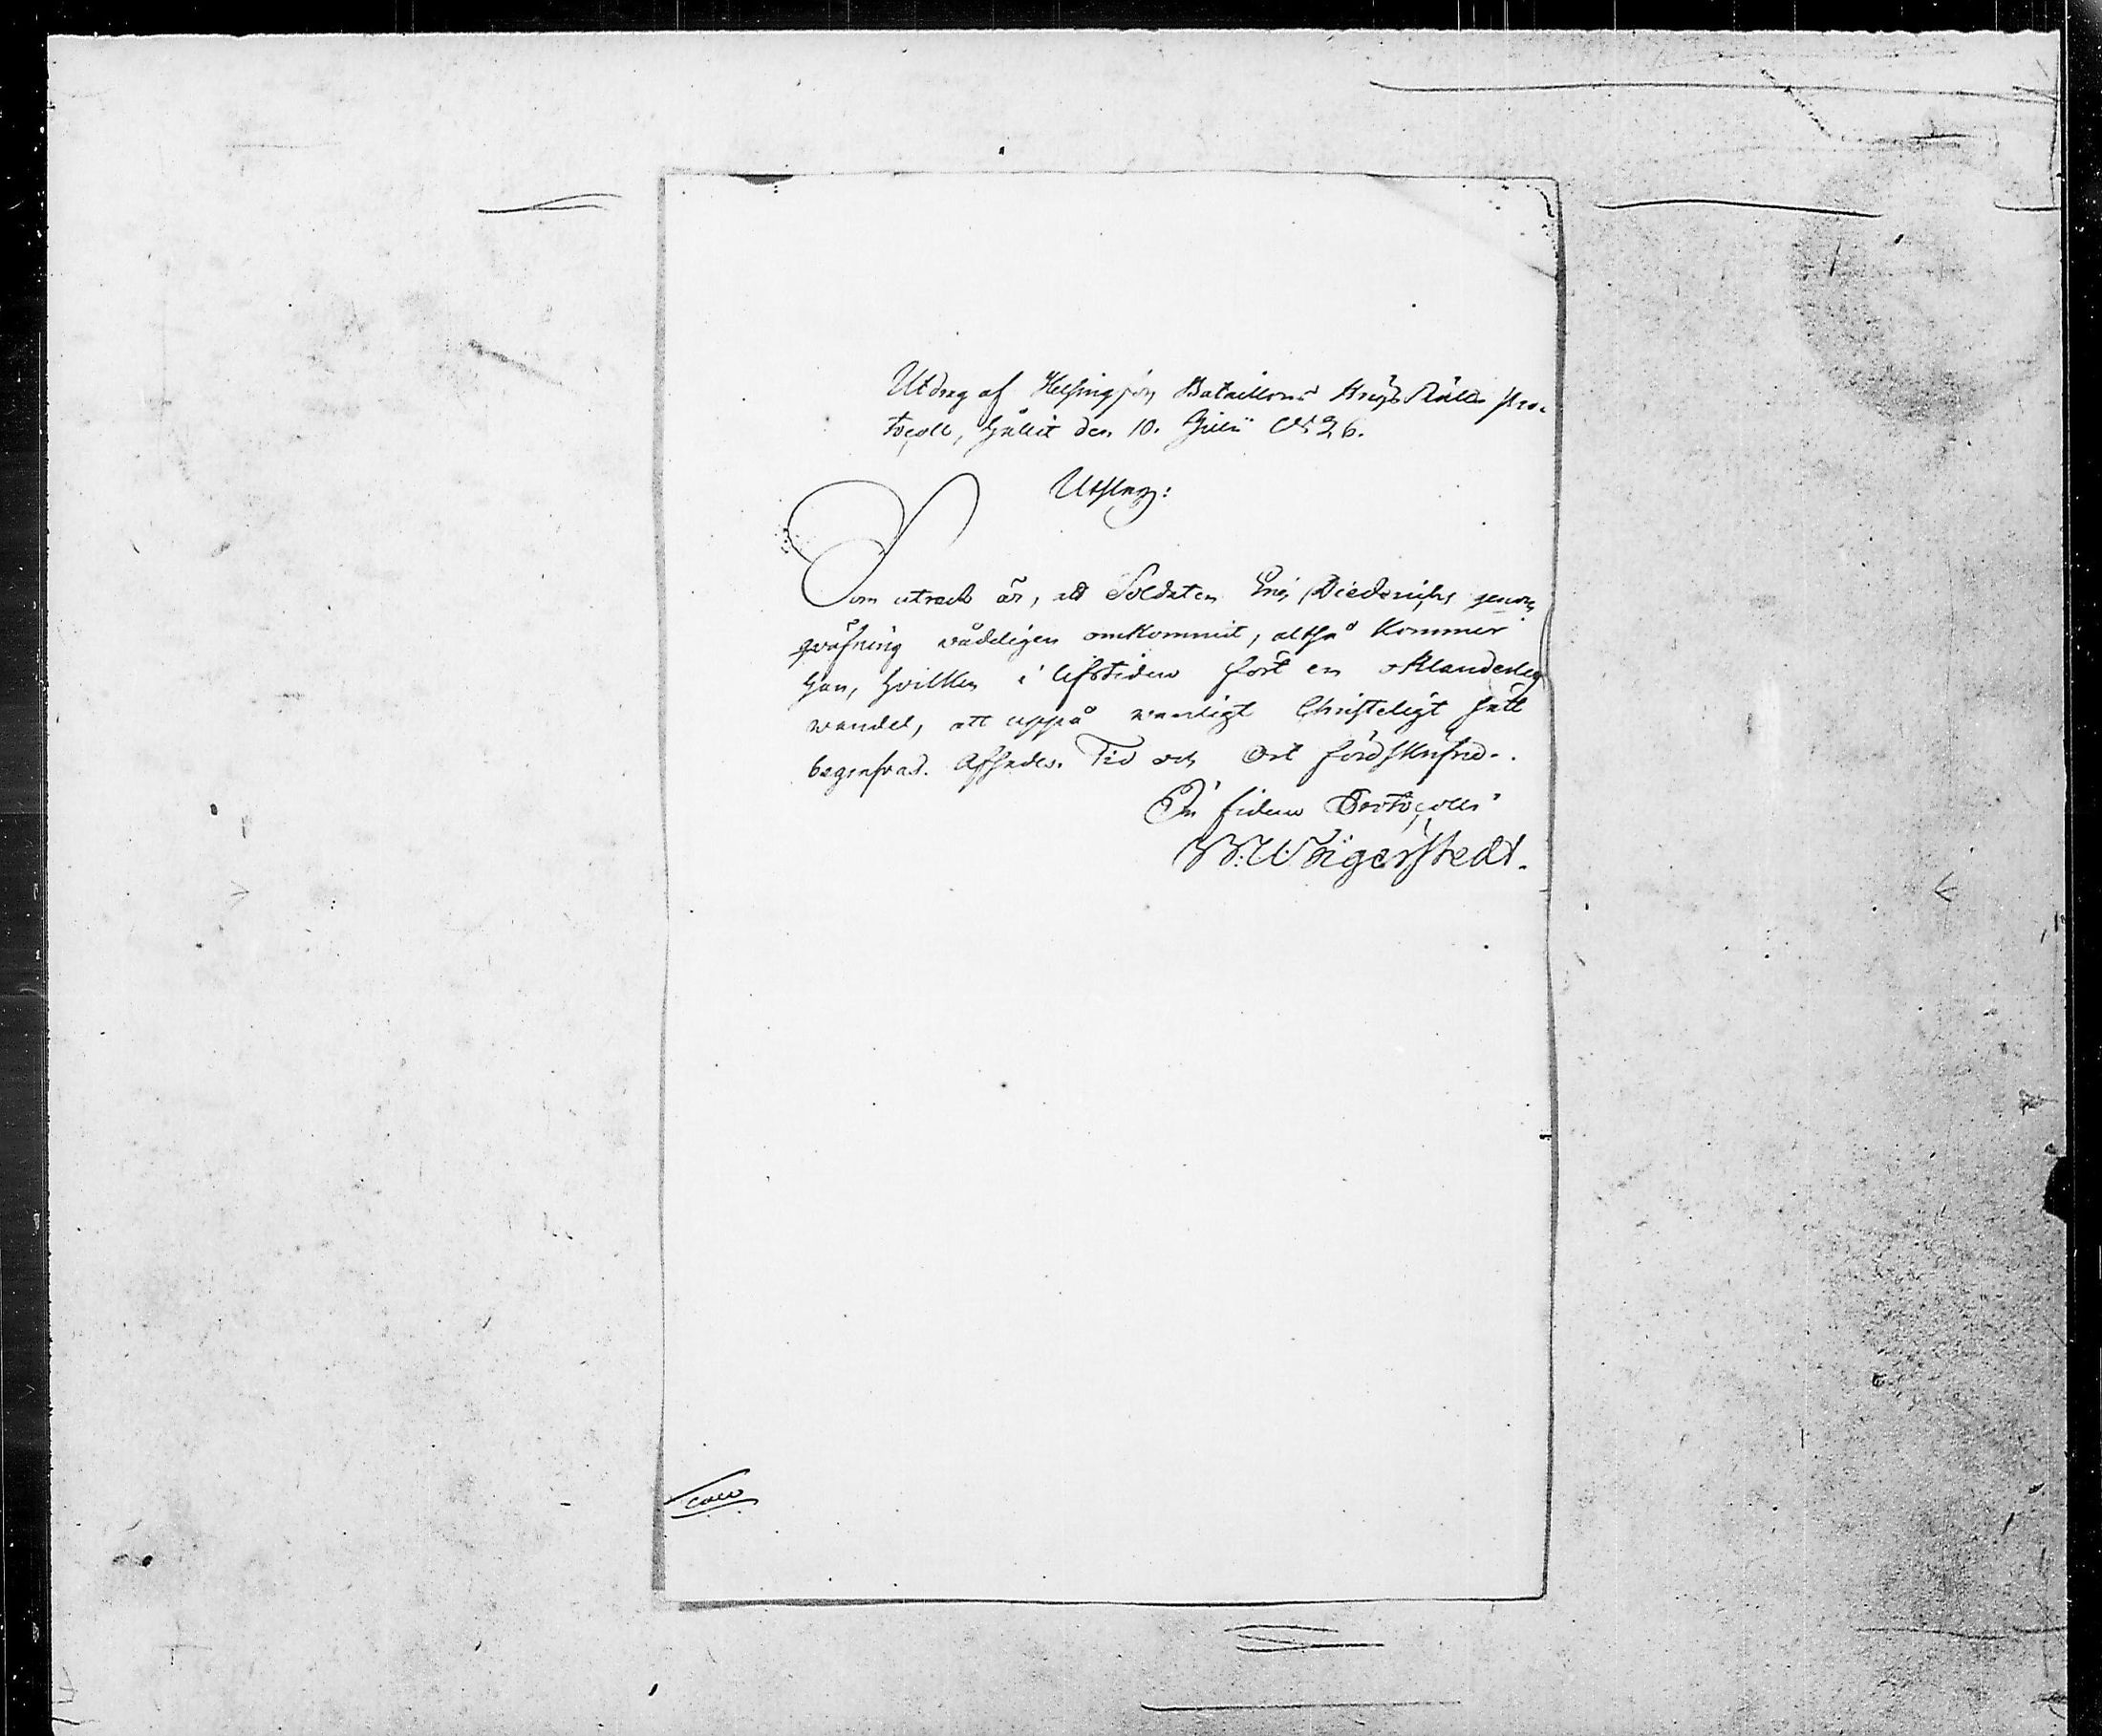 Utdrag af Helsingfors Bataillons KrigsRätts Pro-
tocoll, hållit den 10. Julii 1826.
Utslag:
Som utredt är, att Soldaten Eric Diederichs genom
qväfning vådeligen omkommit, altså kommer
han, hvilken i lifstiden fört en oklanderlig
wandel, att uppå wanligt Christeligt sätt
begrafvas. Afsades. Tid och Ort förrskrifne.
In fidem Protocolli
W: W: Ingerstedt.